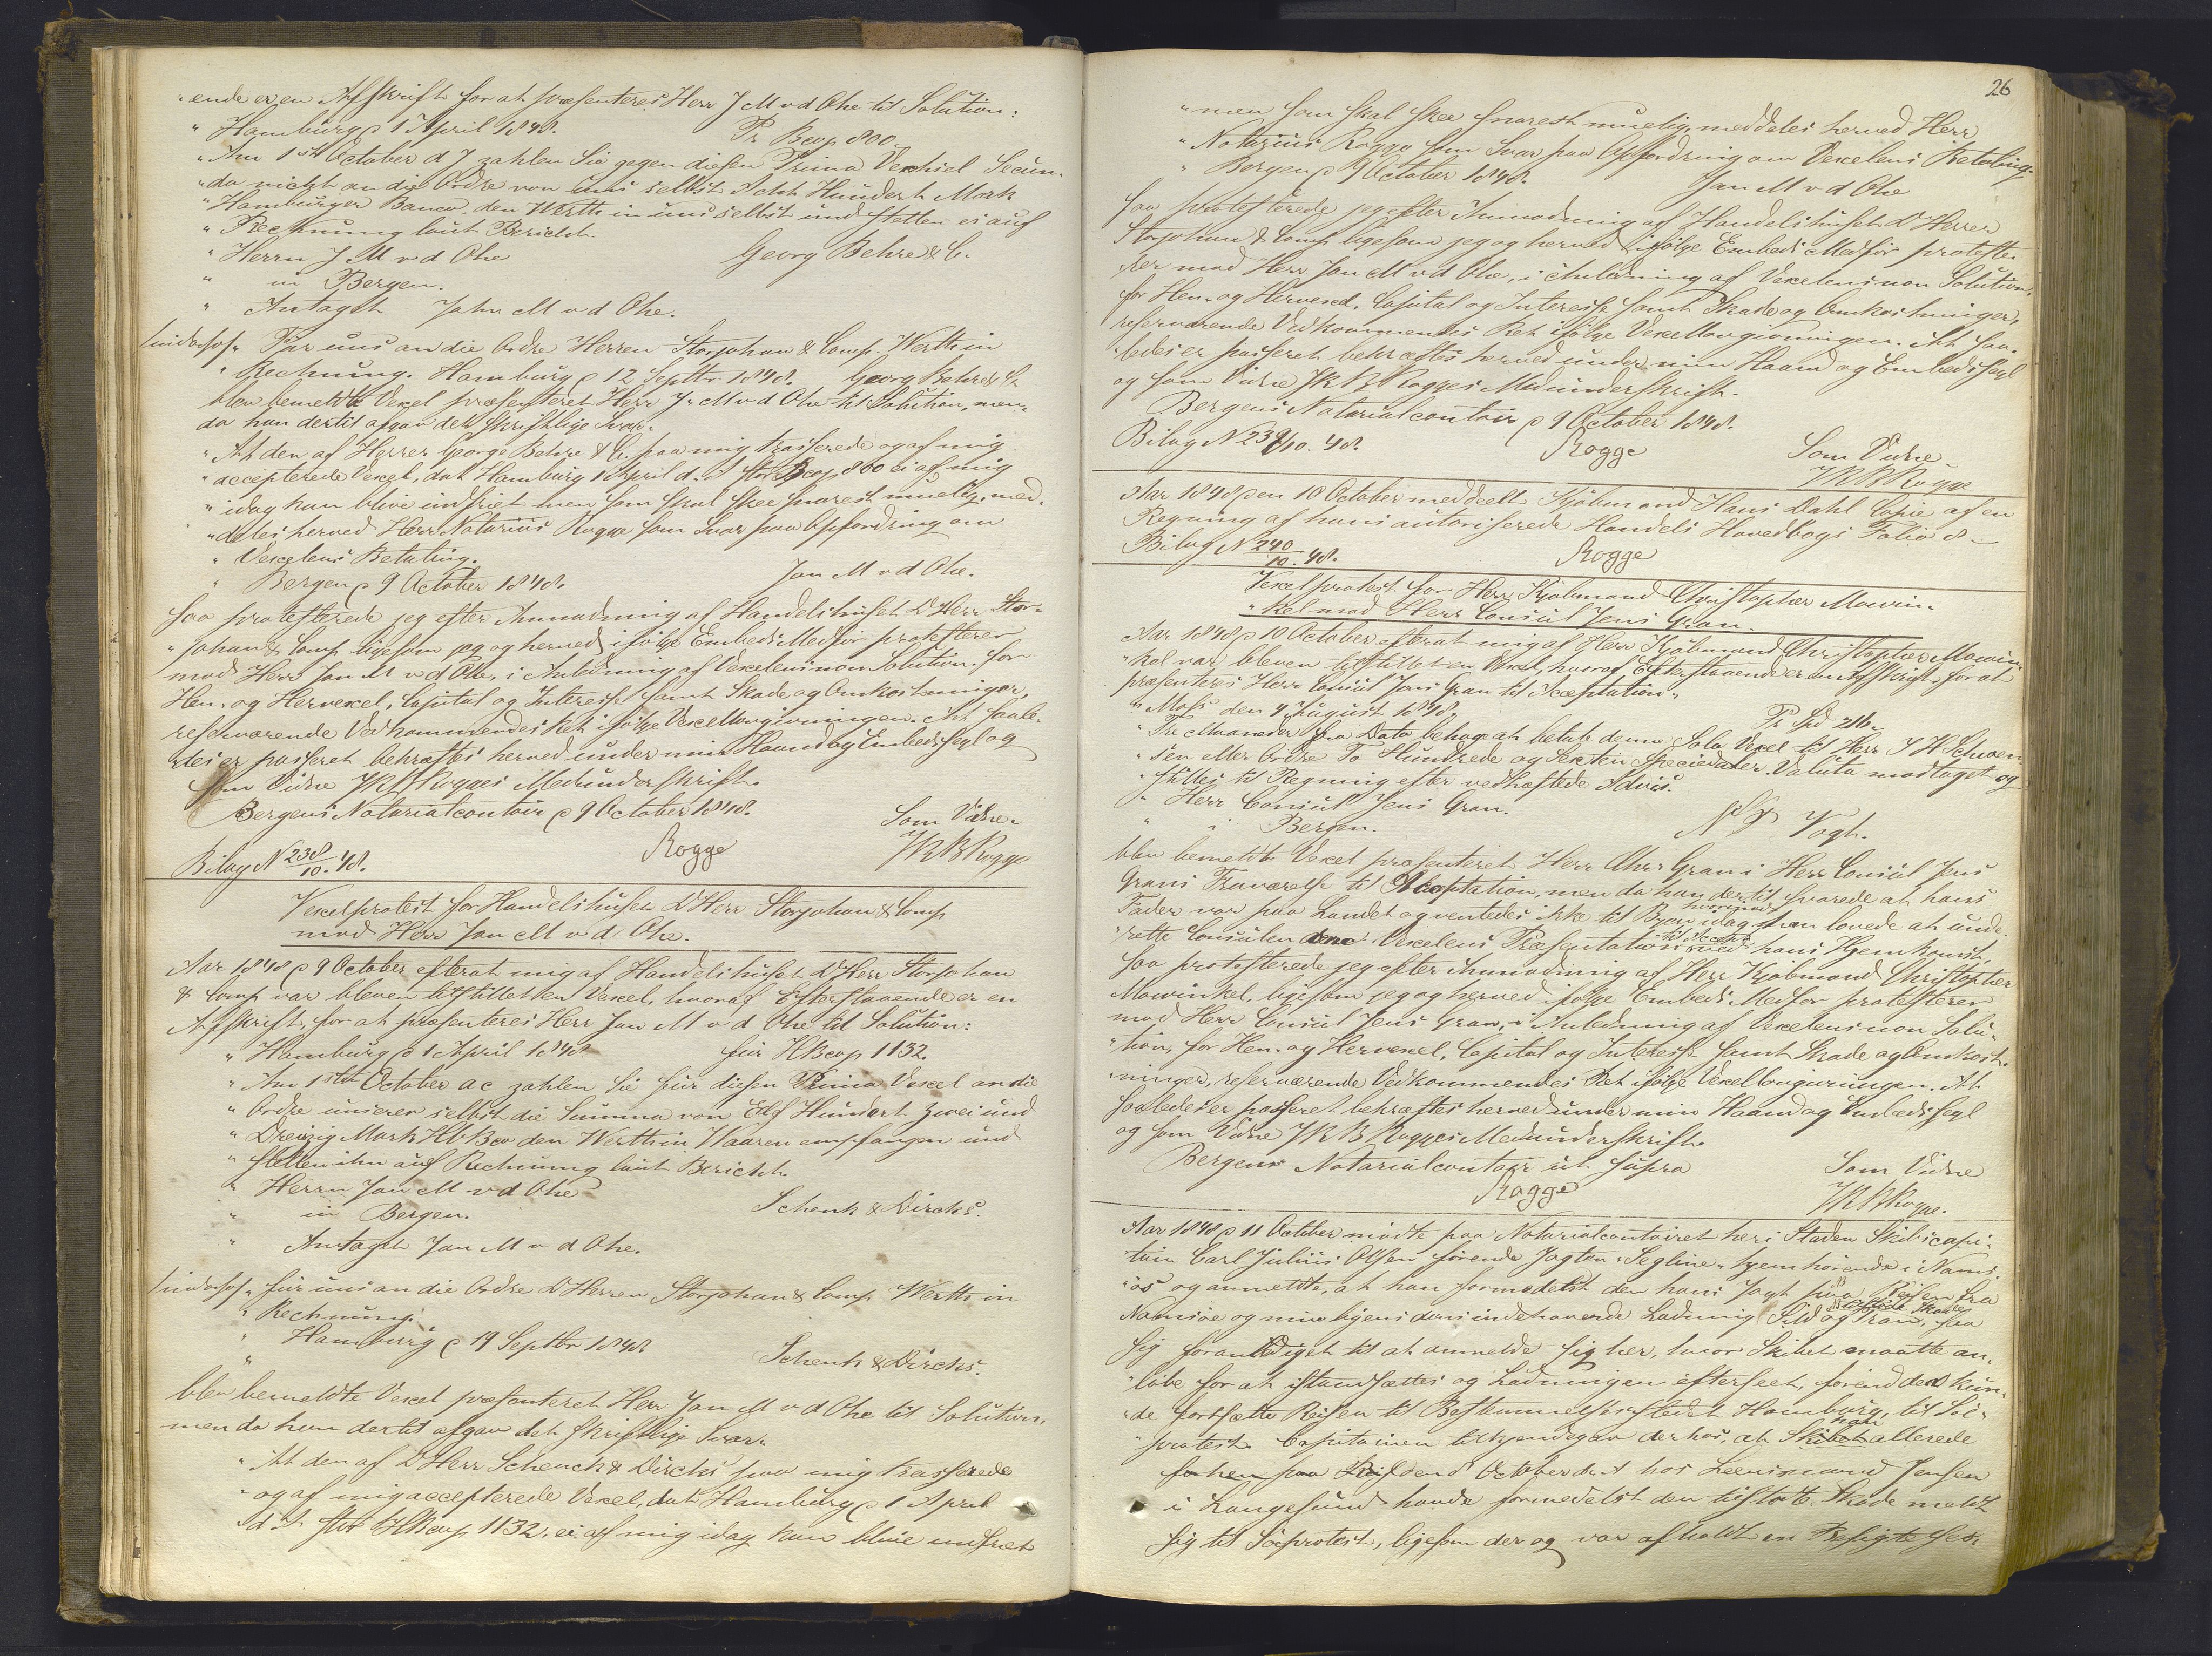 ende er en Afskrift for at præsenteres Herr J M v d Ohe til Solution:
" Hamburg p 1 April 1848. Pr Bcop 800.
"Am 1sten October d J zahlen Sie gegen diesen Prima Wechsel Secun-
"da nicht an die Ordre von uns selbst Acht Hundert Mark
"Hamburger Banco, den Werth in uns selbst und stellen es auf
" Rechnung laut Bericht.
" Herrn J M v d Ohe Georg Behre & C.
" in Bergen.
" Antaget Jahn M v d Ohe.
" Für uns an die Ordre Herren Storjohan & Comp. Werth in
" Rechnung. Hamburg p 12 Septbr 1848. Georg Behre & C
blev bemeldte Vexel præsenteret Herr J. M v d Ohe til Solution, men
da han dertil afgav det skriftlige Svar:
"At den af Herrer George Behre & C. paa mig trasserede og af mig
"accepterede Vexel, dat Hamburg 1 April d. A stor Bcop 800 ei af mig
"idag kan blive indfriet men som skal skee snarest muelig, med-
"deles herved Herr Notarius Rogge som Svar paa Opfordring om
" Vexelens Betaling.
" Bergen p 9 October 1848. Jan M v d Ohe.
saa protesterede jeg efter Anmodning af Handelshuset D'Herr Stor-
"johan & Comp ligesom jeg og herved ifølge Embeds Medfør protesterer
mod Herr Jan M v d Ohe, i Anledning af Vexelens non Solution for
Hen- og Hervexel, Capital og Interesse samt Skade og Omkostninger,
reserverende Vedkommendes Ret ifølge Vexellovgivningen. At saale-
des er passeret bekræftes herved under min Haand og Embedssegl og
som Vidne J K B Rogges Medunderskrift.
Bergens Notarialcontoir p 9 October 1848.
Som Vidne
Bilag N 238/10. 48. Rogge J K B Rogge
Vexelprotest for Handelshuset D'Herr Storjohan & Comp
mod Herr Jan M v d Ohe.
Aar 1848 p 9 October, efterat mig af Handelshuset D'Herr Storjohan
& Comp var bleven tilstillet en Vexel, hvoraf Efterstaaende er en
Afskrift, for at præsenteres Herr Jan M v d Ohe til Solution:
" Hamburg p 1 April 1848 für HBcop 1132.
" Am 1sten October a c zahlen Sie für diesen Prima Vexel an die
" Ordre unserer selbst die Summa von Elf Hundert zwei und
" Dreizig Mark Hb Bco den Werth in Waaren empfangen und
" stellen ihn auf Rechnung laut Bericht.
" Herrn Jan M v d Ohe
" in Bergen. Schenk & Dircks.
" Antaget Jan M v d Ohe.
" für uns an die Ordre D'Herren Storjohan & Comp Werth in
" Rechnung.
" Hamburg p 19 Septbr 1848
" Schenk & Dircks.
blev bemeldte Vexel præsenteret Herr Jan M v d Ohe til Solution,
men da han dertil afgav det skriftlige Svar:
" At den af D'Herr Schenck & Dircks paa mig trasserede
" og af mig accepterede Vexel, dat Hamburg p 1 April
" d A. stor HBcop 1132, ei af mig idag kan blive indfriet
26
"men som skal skee snarest muelig, meddeles herved Herr
"Notarius Rogge som Svar paa Opfordring om Vexelens Betaling.
" Bergen p 9 October 1848. Jan M v d Ohe
saa protesterede jeg efter Anmodning af Handelshuset D'Herrer
Storjohan & Comp ligesom jeg og herved ifølge Embeds Medfør proteste-
"rer mod Herr Jan M v d Ohe, i Anledning af Vexelens non Solution,
for Hen- og Hervexel, Capital og Interesse samt Skade og Omkostninger,
reserverende Vedkommendes Ret ifølge Vexellovgivningen. At saa-
ledes er passeret bekræftes herved under min Haand og Embedssegl
og som Vidne J K B Rogges Medunderskrift.
Bergens Notarialcontoir p 9 October 1848.
Bilag N 239/10. 48. Rogge Som Vidne
J K B Rogge
Aar 1848 den 10 October meddeelt Kjøbmand Hans Dahl Copie af en
Regning af hans autoriserede Handels Hovedbogs Folio 8
Bilag N 240/10. 48. Rogge
Vexelprotest for Herr Kjøbmand Christopher Mowin-
"kel mod Herr Consul Jens Gran.
Aar 1848 p 10 October efterat mig af Herr Kjøbmand Christopher Mowin-
"kel var bleven tilstillet en Vexel, hvoraf Efterstaaende er en Afskrift, for at
præsenteres Herr Consul Jens Gran til Acceptation:
"Moss den 4 August 1848. Pr Spd 216.
"Tre Maaneder fra Dato behage at betale denne Sola Vexel til Herr J H Schwen-
"sen eller Ordre To Hundrede og Sexten Speciedaler. Valuta modtaget og
"stilles til Regning efter vedhæftede Advis.
" Herr Consul Jens Gran.
" i Bergen. Vogt.
blev bemeldte Vexel præsenteret Herr Chr. Gran i Herr Consul Jens
Grans Fraværelse til Acceptation, men da han dertil svarede at hans
Fader var paa Landet og ventedes ikke til Byen idag, hvorimod han lovede at unde-
"rette Consulen om Vexelens Præsentation til Accept ved hans Hjemkomst,
saa protesterede jeg efter Anmodning af Herr Kjøbmand Christopher
Mowinkel, ligesom jeg og herved ifølge Embeds Medfør protesterer
mod Herr Consul Jens Gran, i Anledning af Vexelens non Solu-
"tion, for Hen- og Hervexel, Capital og Interesse samt Skade og Omkost-
"ninger, reserverende Vedkommendes Ret ifølge Vexellovgivningen. At
saaledes er passeret bekræftes herved under min Haand og Embedssegl
og som Vidne J K B Rogges Medunderskrift.
Bergens Notarialcontoir ut supra Som Vidne
Rogge J K B Rogge.
Aar 1848 p 11 October mødte paa Notarialcontoiret her i Staden Skibscapi-
"tain Carl Julius Olsen førende Jagten "Segline" hjemhørende i Nams-
"os og anmeldte, at han formedelst den hans Jagt paa Reisen fra
Namsos og mueligens dens indehavende Ladning Sild og Tran, tilføiede Skade, saa
sig foranlediget til at anmelde sig her, hvor Skibet maatte an-
"løbe for at istandsættes og Ladningen efterseet, førend den kun-
"de fortsætte Reisen til Bestemmelsesstedet Hamburg, til Søe-
"protest. Capitainen tilkjendegav derhos, at han allerede
forhen paa Reisen d 8 October d A hos Leensmand Jensen
i Langesund havde formedelst den tilstødte Skade meldt
sig til Søeprotest, ligesom der og var afholdt en Besigtelses-